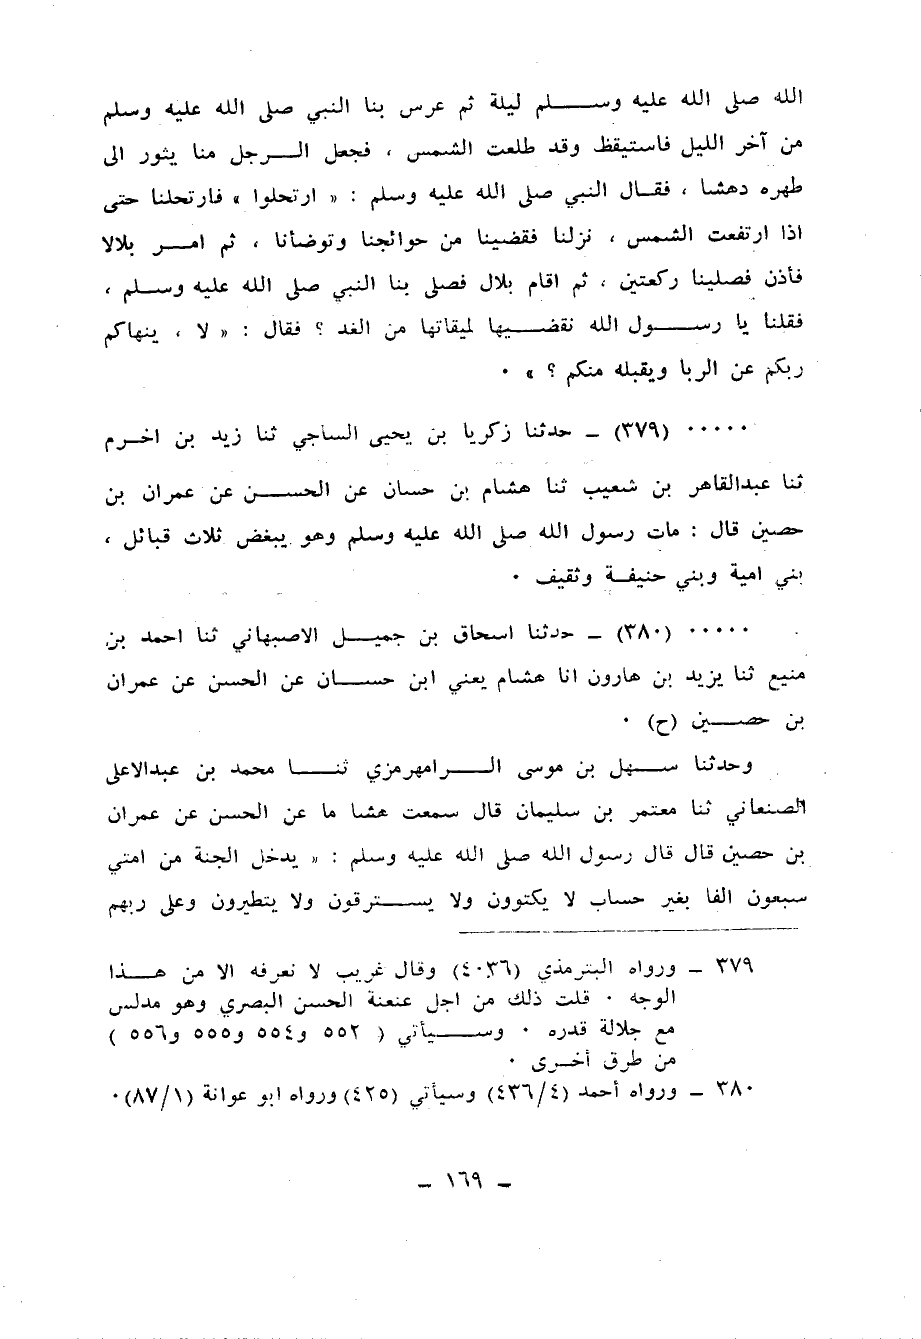 الله صلى الله عليه وسلم ليلة ثم عرس بنا النبي صلى الله عليه وسلم
من آخر الليل فاستيقظ وقد طلعت الشمس ، فجعل الرجل منا يثور الى
طهره دهشا ، فقال النبي صلى الله عليه وسلم : « ارتحلوا » فارتحلنا حتى
اذا ارتفعت الشمس ، نزلنا فقضينا من حوائجنا وتوضأنا ، ثم امر بلالا
فأذن فصلينا ركعتين ، ثم اقام بلال فصلى بنا النبي صلى الله عليه وسلم ،
فقلنا يا رسول الله نقضيها لميقاتها من الغد ؟ فقال : « لا ، ينهاكم
ربكم عن الربا ويقبله منكم ؟ » ٠
٠٠٠٠٠ (٣٧٩) ـ حدثنا زكريا بن يحيى الساجي ثنا زيد بن اخرم
ثنا عبدالقاهر بن شعيب ثنا هشام بن حسان عن الحسن عن عمران بن
حصين قال : مات رسول الله صلى الله عليه وسلم وهو يبغض ثلاث قبائل ،
بني امية وبني حنيفة وثقيف ٠
٠٠٠٠٠ (٣٨٠) ـ حدثنا اسحاق بن جميل الاصبهاني ثنا احمد بن
منيع ثنا يزيد بن هارون انا هشام يعني ابن حسان عن الحسن عن عمران
بن حصين (ح) ٠
وحدثنا سهل بن موسى الرامهرمزي ثنا محمد بن عبدالاعلى
الصنعاني ثنا معتمر بن سليمان قال سمعت هشا ما عن الحسن عن عمران
بن حصين قال قال رسول الله صلى الله عليه وسلم : « يدخل الجنة من امتي
سبعون الفا بغير حساب لا يكتوون ولا يسترقون ولا يتطيرون وعلى ربهم
٣٧٩ ـ ورواه الترمذي (٤٠٣٦) وقال غريب لا نعرفه الا من هذا
الوجه ٠ قلت ذلك من اجل عنعنة الحسن البصري وهو مدلس
مع جلالة قدره ٠ وسيأتي ( ٥٥٢ و٥٥٤ و٥٥٥ و٥٥٦ )
من طرق أخرى ٠
٣٨٠ ـ ورواه أحمد (٤٣٦/٤) وسيأتي (٤٢٥) ورواه ابو عوانة (٨٧/١)٠
ـ ١٦٩ ـ